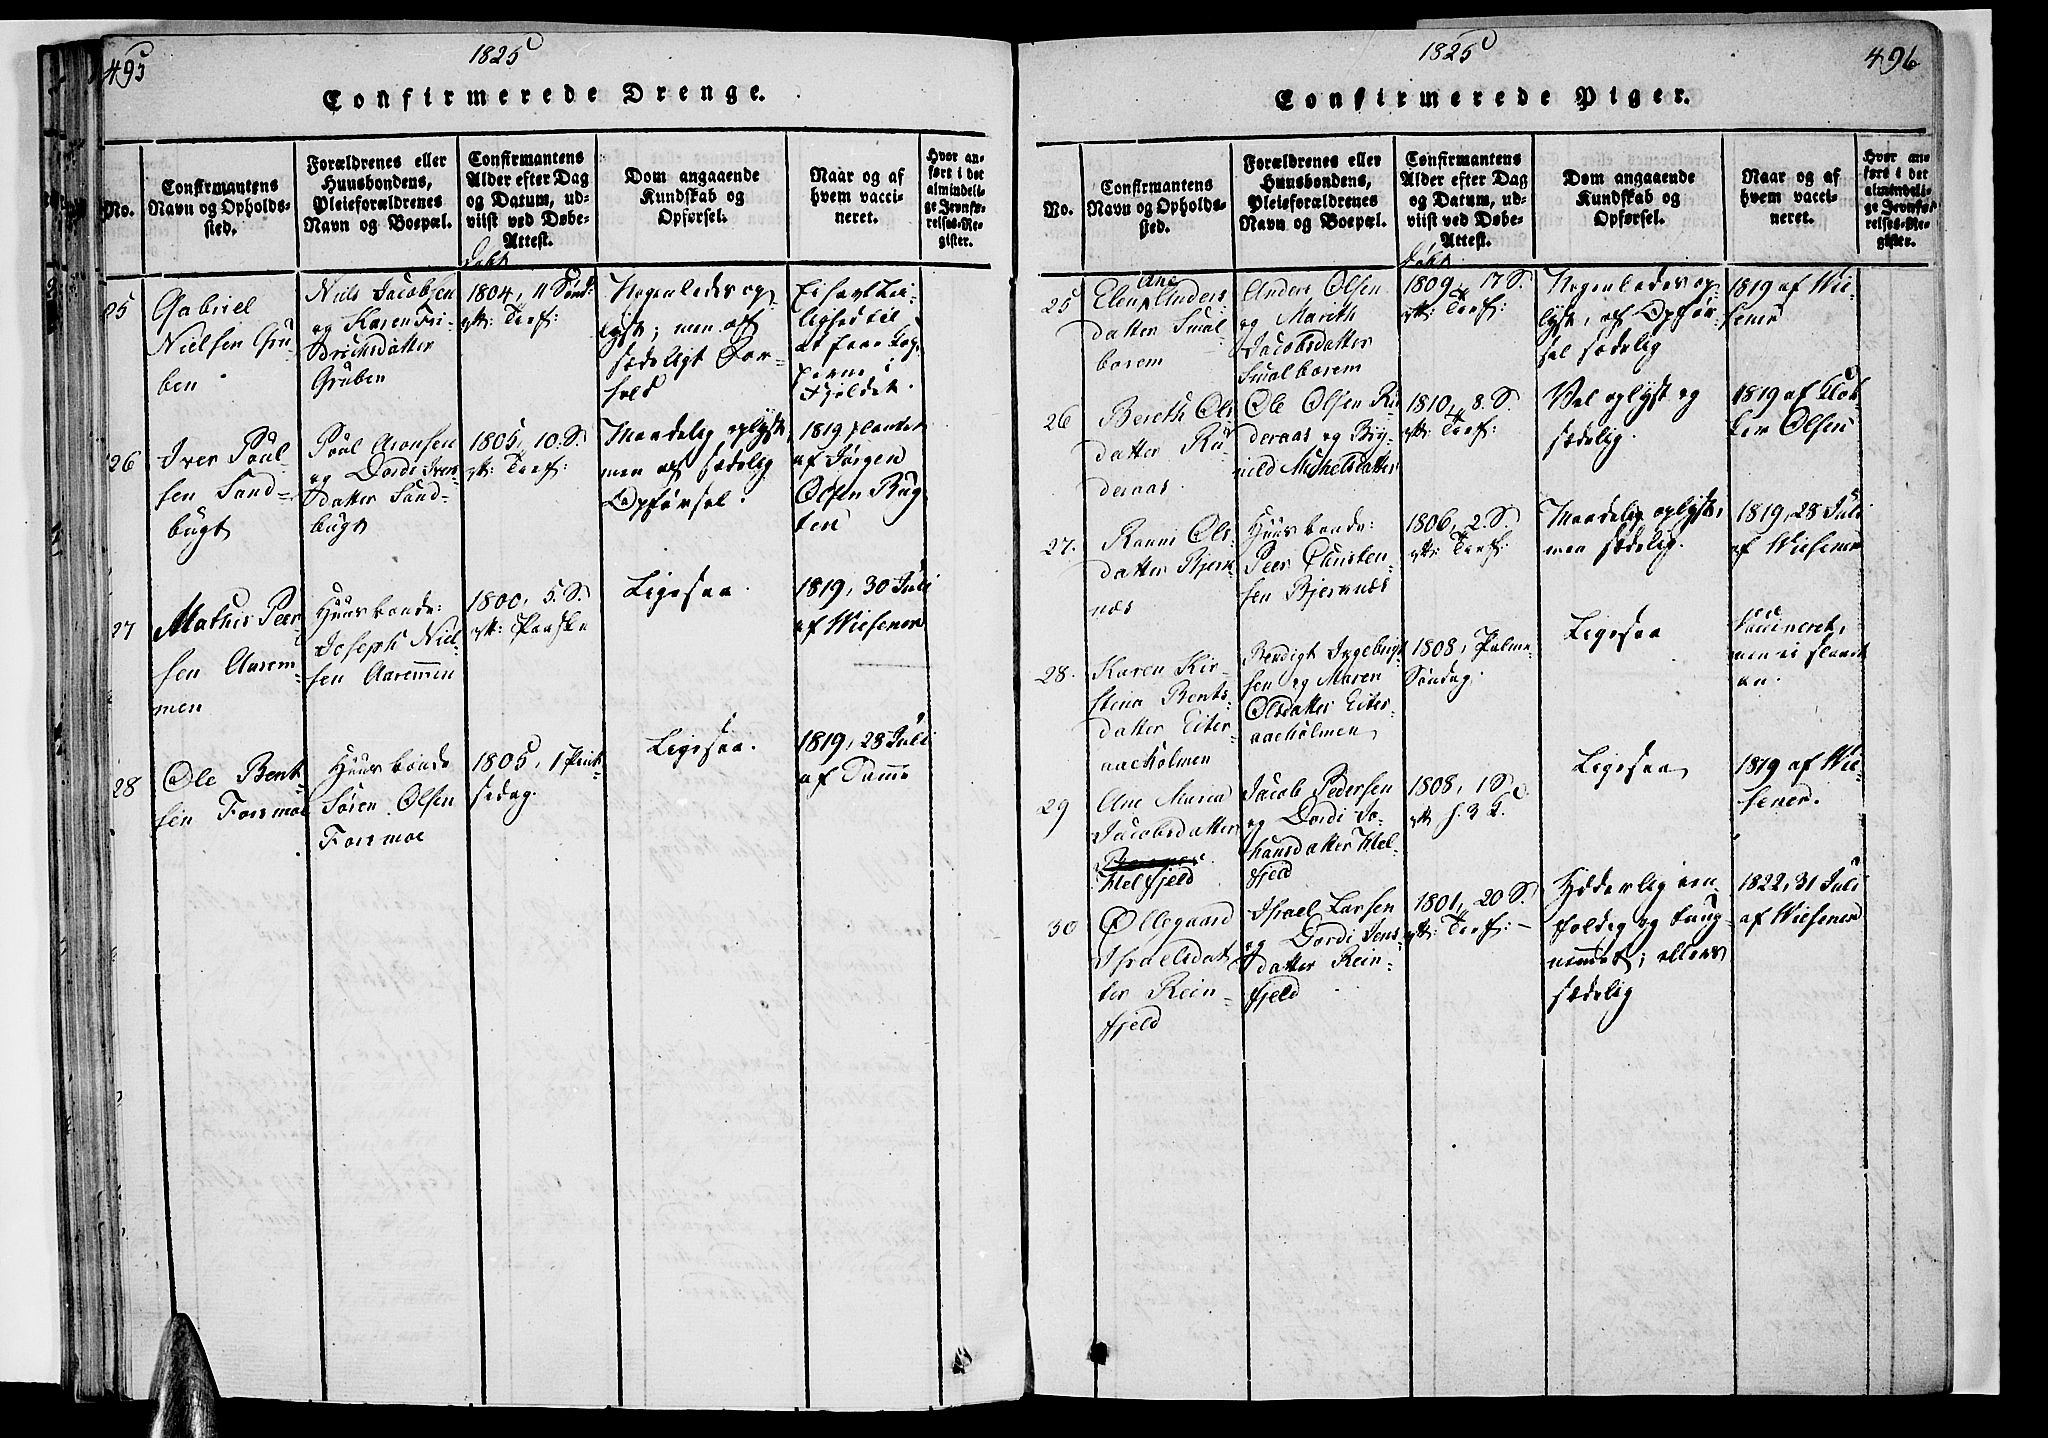 495
1825
Confirmerede Drenge.
No.
Confirmantens
Navn og Opholds-
sted.
Forældrenes eller
Huusbondens,
Pleieforældrenes
Navn og Boepæl.
Confirmantens
Alder efter Dag
og Datum, ud-
viist ved Døbe-
Attest.
Dom angaaende
Kundskab og
Opførsel.
Naar og af
hvem vacci-
neret.
Hvor an-
ført i det
almindeli-
ge Jevnfø-
relses-Re-
gister.
Døbt
25
Gabriel
Nielsen Gru-
ben
Niels Jacobsen
og Karen Fri-
drichsdatter
Gruben
1804, 11 Sønd:
eft: Tref:
Nogenledes op-
lyst; men af
sædeligt For-
hold
Ei havt Lei-
lighed til
at faae Kop-
perne i
Fjeldet.
26
Iver Poul-
sen Sand-
bugt
Poul Aronsen
og Dordi Ivers
datter Sand-
bugt
1805, 10. S.
eft: Tref:
Maadelig oplyst,
men af sædelig
Opførsel.
1819 plantet
af Jørgen
Olsen Bug-
ten
27
Mathis Peer-
sen Aarem-
men
Huusbonde:
Joseph Niel-
sen Aaremmen
1800, 5. S.
eft: Paaske
Ligesaa.
1819, 30 Juli
af Wiesener
28
Ole Bent-
sen Forsmoe
Huusbonde
Søren Olsen
Forsmoe
1805, 1 Pint-
sedag.
Ligesaa.
1819, 28 Juli
af Samme
1825
496
Confirmerede Piger.
No.
Confirmantens
Navn og Opholds-
sted.
Forældrenes eller
Huusbondens,
Pleieforældrenes
Navn og Boepæl.
Confirmantens
Alder efter Dag
og Datum, ud-
viist ved Døbe-
Attest.
Dom angaaende
Kundskab og
Opførsel.
Naar og af
hvem vacci-
neret.
Hvor an-
ført i det
almindeli-
ge Jevnfø-
relses-Re-
gister.
Døbt
25
Ane
Elen Anders
datter Smal
borem
Anders Olsen
og Marith
Jacobsdatter
Smalborem
1809, 17 S.
eft: Tref:
Nogenledes op-
lyst, af Opfør-
sel sædelig
1819 af Wie-
sener
26
Bereth Ols
datter Ru-
deraas
Ole Olsen Ru
deraas og Bry-
nild Michelsdatter
1810, 8. S.
eft: Tref:
Vel oplyst og
sædelig.
1819 af Klok-
ker Olsen
27.
Ranni Ols-
datter Bjerk
næs
Huusbonde:
Peer Christen-
sen Bjerknæs
1806, 2. S.
eft: Tref:
Maadelig oplyst,
men sædelig.
1819, 28 Juli
af Wiesener
28.
Karen Kir-
stina Bents-
datter Eiter-
aaeholmen
Bendigt Ingebrigt
sen og Maren
Olsdatter Eiter-
aaeholmen
1808, Palme-
Søndag.
Ligesaa
Vaccineret,
men ei slaaet
an.
29
Ane Maria
Jacobsdatter
Helfjeld
Jacob Pedersen
og Dordi Jo-
hansdatter Hel-
fjeld
1808, 1 S.
eft h. 3 K.
Ligesaa
1819 af Wie-
sener.
30
Øllegaard
Israelsdat
ter Rein-
fjeld
Israel Larsen
og Dordi Jens
datter Rein-
fjeld
1801, 20 S.
eft: Tref: –
Høderlig een-
foldig og tung-
nemmet; ellers
sædelig
1822, 31 Juli
af Wiesener